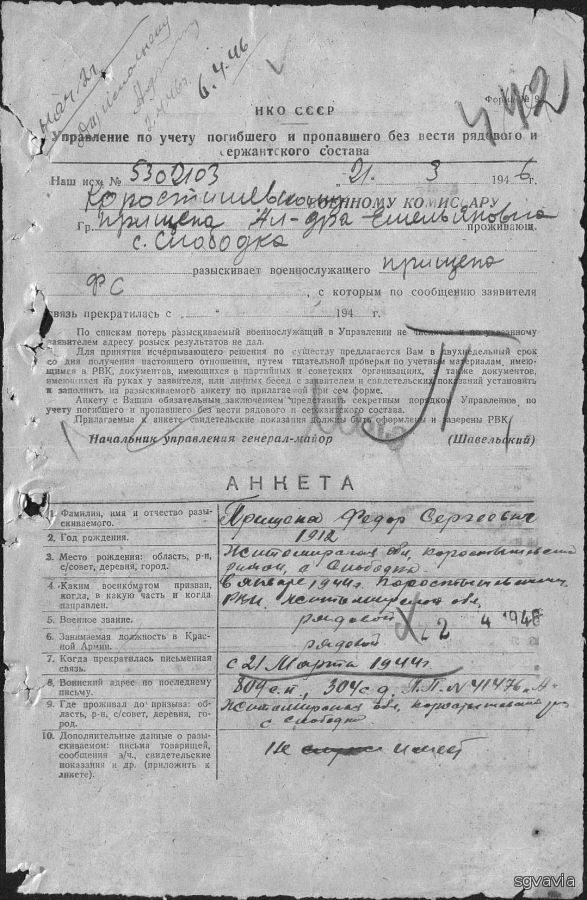 6.4.46
442
Форма № 9
НКО СССР
Управление по учету погибшего и пропавшего без вести рядового и
сержантского состава
Наш исх. № 5302103 „21. 3 1946г.
Коростишевскому ВОЕННОМУ КОМИССАРУ
Гр. Прищепа Ал-дра Емельяновна проживающ.
с. Слободка
разыскивает военнослужащего Прищепа
ФС , с которым по сообщению заявителя
связь прекратилась с 194 г.
По спискам потерь разыскиваемый военнослужащий в Управлении не значится и по указанному
заявителем адресу розыск результатов не дал.
Для принятия исчерпывающего решения по существу предлагается Вам в двухнедельный срок
со дня получения настоящего отношения, путем тщательной проверки по учетным материалам, имею-
щимся в РВК, документов, имеющихся в партийных и советских организациях, а также документов,
имеющихся на руках у заявителя, или личных бесед с заявителем и свидетельских показаний установить
и заполнить на разыскиваемого анкету по прилагаемой при сем форме.
Анкету с Вашим обязательным заключением представить секретным порядком Управлению, по
учету погибшего и пропавшего без вести рядового и сержантского состава.
Прилагаемые к анкете свидетельские показания должны быть оформлены и заверены РВК.
П
Начальник управления генерал-майор (Шавельский)
АНКЕТА
1. Фамилия, имя и отчество разы-
скиваемого.
Прищепа Федор Сергеевич
2. Год рождения.
1912
3. Место рождения: область, р-н,
с/совет, деревня, город.
Житомирская обл, Коростышевский
район, с. Слободка
4. Каким военкоматом призван,
когда, в какую часть и когда
направлен.
В январе 1944г. Коростышевским
РВК, Житомирской обл.
5. Военное звание.
рядовой
2 4 1946
6. Занимаемая должность в Крас-
ной Армии.
рядовой
7. Когда прекратилась письменная
связь.
с 21 Марта 1944г
8. Воинский адрес по последнему
письму.
809 сп, 304 сд, П.П. N 41476 "А"
9. Где проживал до призыва: об-
ласть, р-н, с/совет, деревня, го-
род.
Житомирская обл, Коростышевский р-н
с Слободка
10. Дополнительные данные о разы-
скиваемом: письма товарищей,
сообщения з/ч., свидетельские
показания и др. (приложить к
анкете).
Не имеет
sgvavia